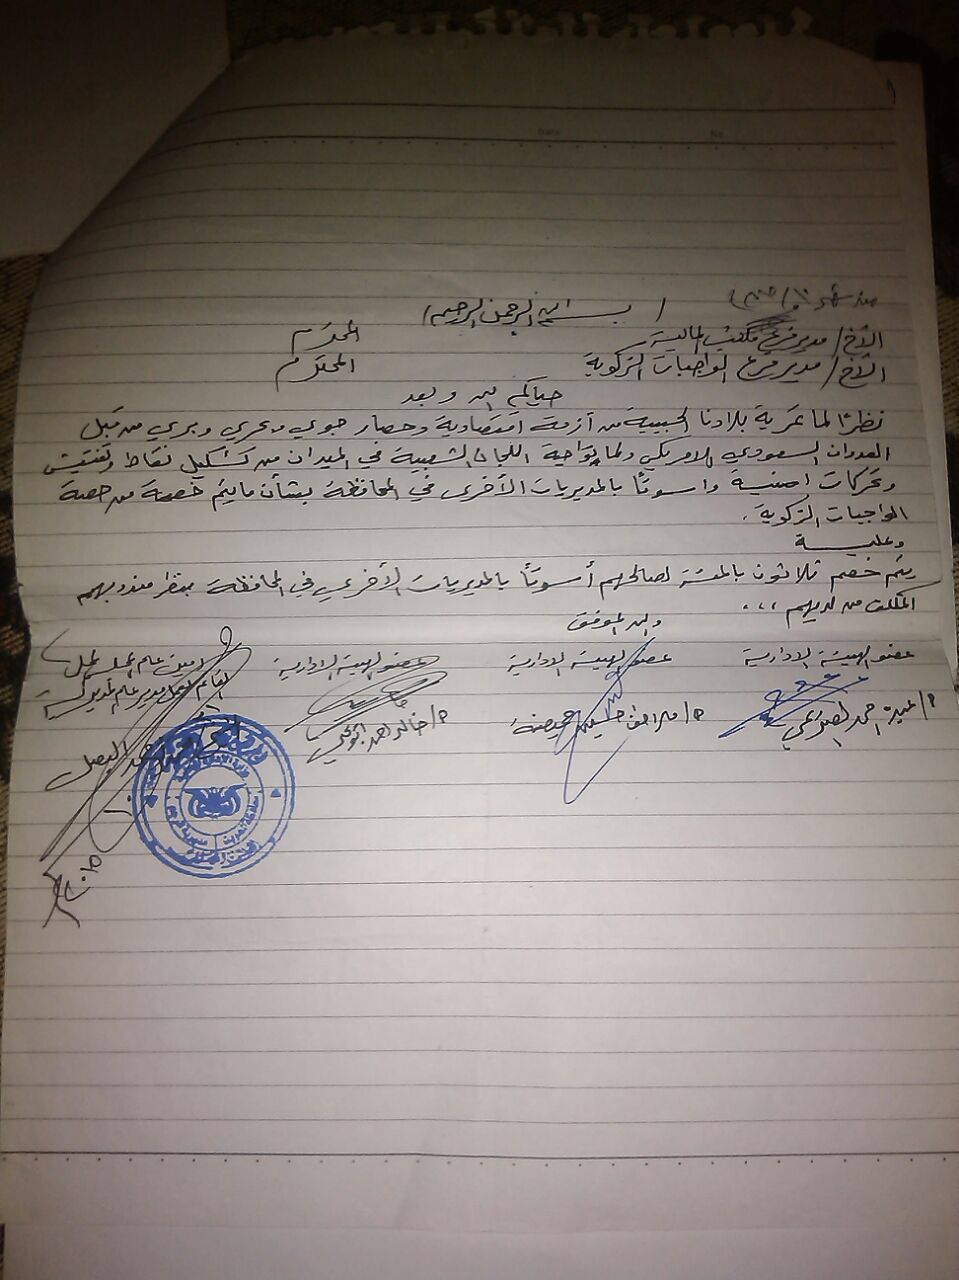 بسم الله الرحمن الرحيم
الأخ/ مدير فرع مكتب المالية المحترم
الأخ/ مدير فرع الواجبات الزكوية المحترم
حياكم الله وبعد
نظرًا لما تمر بة بلادنا الحبيبة من أزمة اقتصادية وحصار جوي وبحري وبري من قبل
العدوان السعودي الامريكي ولما تواجة اللجان الشعبية في الميدان من تشكيل نقاط وتفتيش
وتحركات امنية واسوتًا بالمديريات الأخرى في المحافظة بشأن مايتم خصمة من حصة
الواجبات الزكوية.
وعليـــة
يتم خصم ثلاثون بالمئة لصالحهم أسوتًا بالمديريات الأخرى في المحافظة بنظر مندوبهم
المكلف من لديهم ،،،
والله الموفق
عضو الهيئة الادارية عضو الهيئة الادارية عضو الهيئة الادارية أمين عام المجلس المحلي
القائم بعمل مدير عام المديرية
أ/ عبدة احمد أ/ أ/ خالد احمد